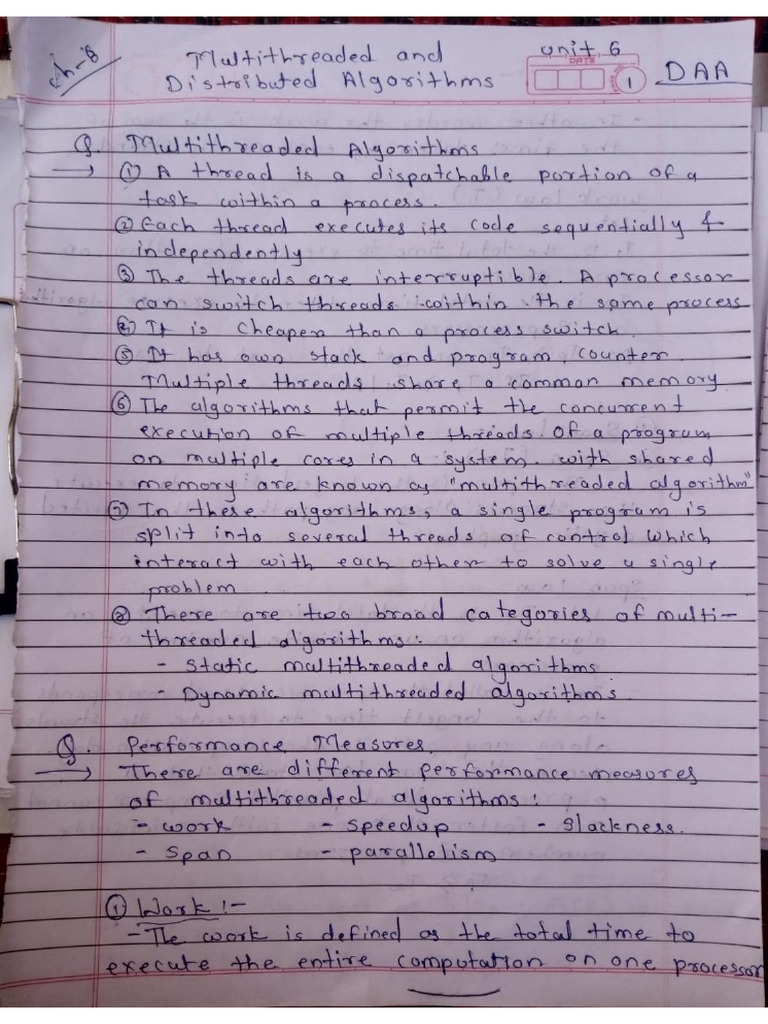 Ch-8
Multithreaded and
Distributed Algorithms
Unit 6
DATE
1
DAA
Q. Multithreaded Algorithms
→ ① A thread is a dispatchable portion of a
task within a process.
② Each thread executes its code sequentially &
independently
③ The threads are interruptible. A processor
can switch threads within the same process
④ It is cheaper than a process switch.
⑤ It has own stack and program counter.
Multiple threads share a common memory
⑥ The algorithms that permit the concurrent
execution of multiple threads of a program
on multiple cores in a system with shared
memory are known as "multithreaded algorithm"
⑦ In these algorithms, a single program is
split into several threads of control which
interact with each other to solve a single
problem
⑧ There are two broad categories of multi-
threaded algorithms:
- Static multithreaded algorithms
- Dynamic multithreaded algorithms
Q. Performance Measures.
→ There are different performance measures
of multithreaded algorithms:
- work - speedup - slackness.
- span - parallelism
① Work :-
- The work is defined as the total time to
execute the entire computation on one processor